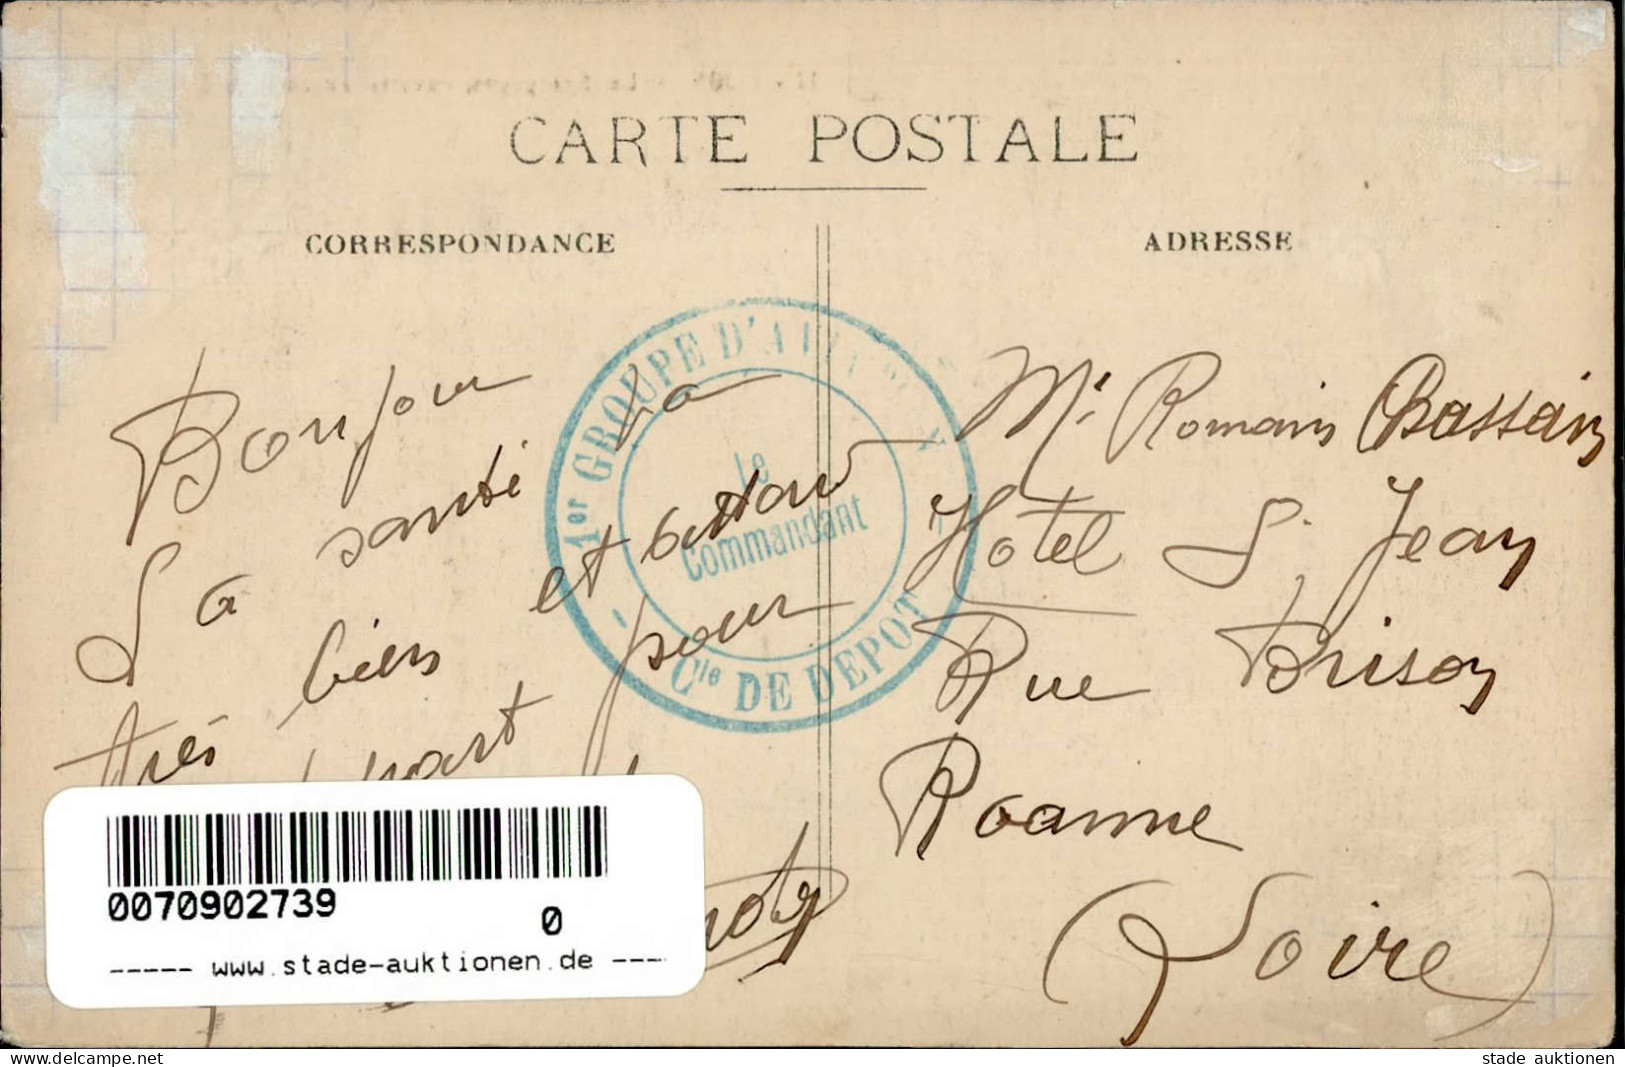 CARTE POSTALE
CORRESPONDANCE
ADRESSE
1er GROUPE D'AVIATION
Le Commandant
Cie DE DEPOT
Bonjour
La santé va
très bien et attend
part pour
Mr Romain Chassain
Hotel St Jean
Rue Brison
Roanne
(Loire)
0070902739
0
----- www.stade-auktionen.de ----
stade auktionen